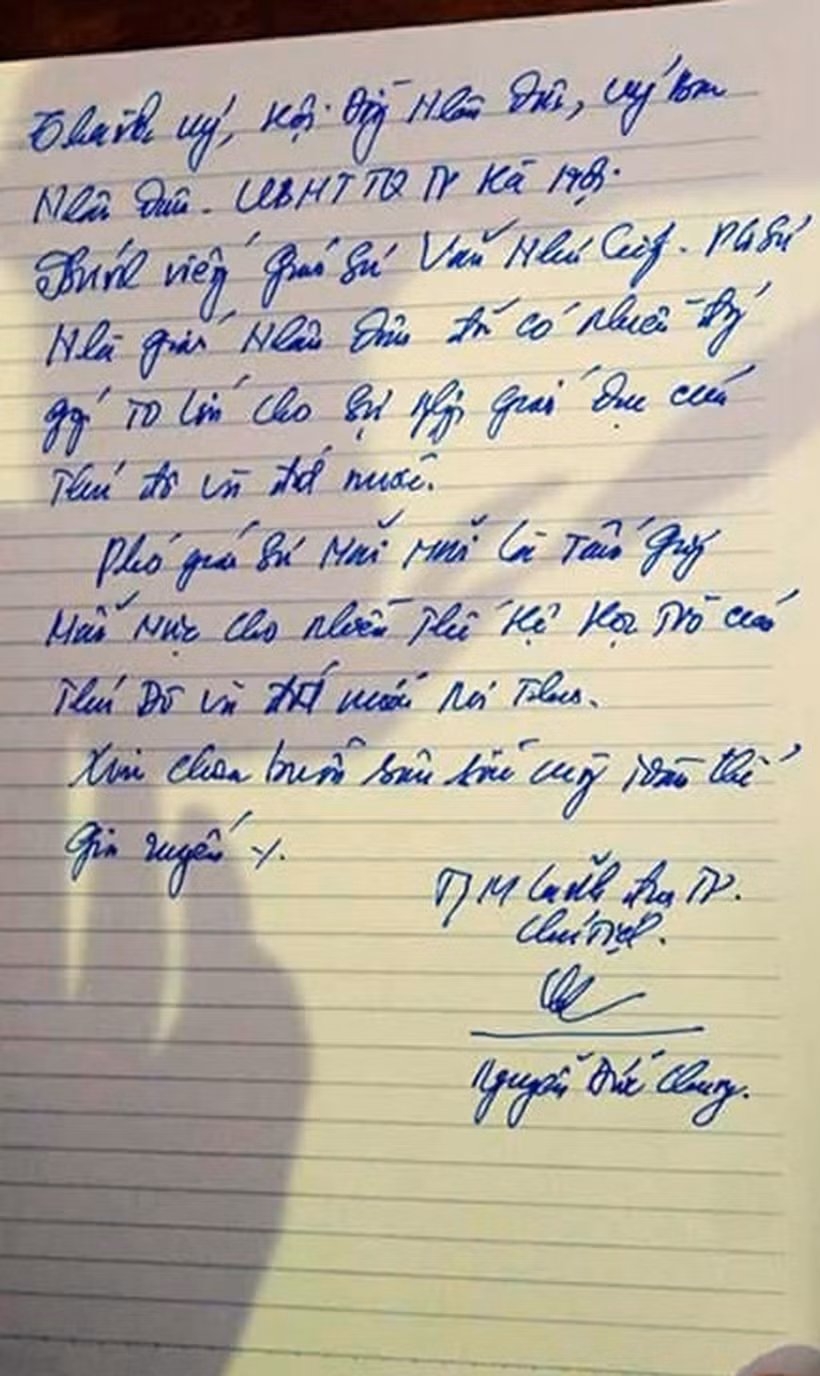 Thành uỷ, Hội Đồng Nhân Dân, Uỷ ban
Nhân Dân. UBMTTQ TP Hà Nội.
Kính viếng Giáo sư Văn Như Cương. PGSư
Nhà giáo Nhân Dân đã có nhiều đóng
góp to lớn cho sự nghiệp giáo dục của
Thủ đô và đất nước.
Phó giáo sư Mãi Mãi là Tấm gương
Mẫu Mực cho nhiều Thế Hệ Học Trò của
Thủ Đô và đất nước noi Theo.
Xin chia buồn sâu sắc cùng toàn thể
Gia quyến ./.
T/M Lãnh đạo TP.
Chủ Tịch.
Nguyễn Đức Chung.